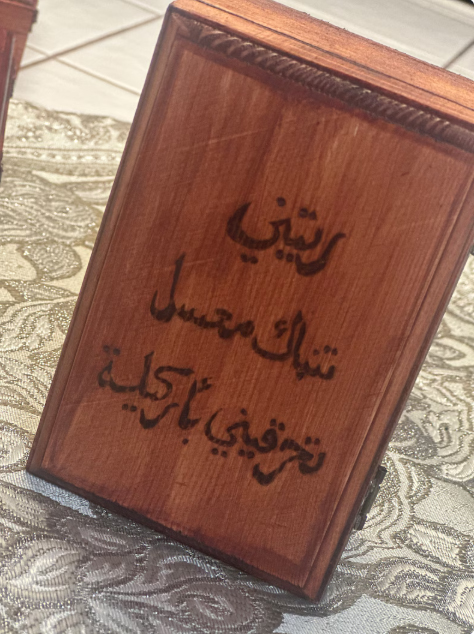 ريتني
تنباك معسل
تحرقيني بأركيلة